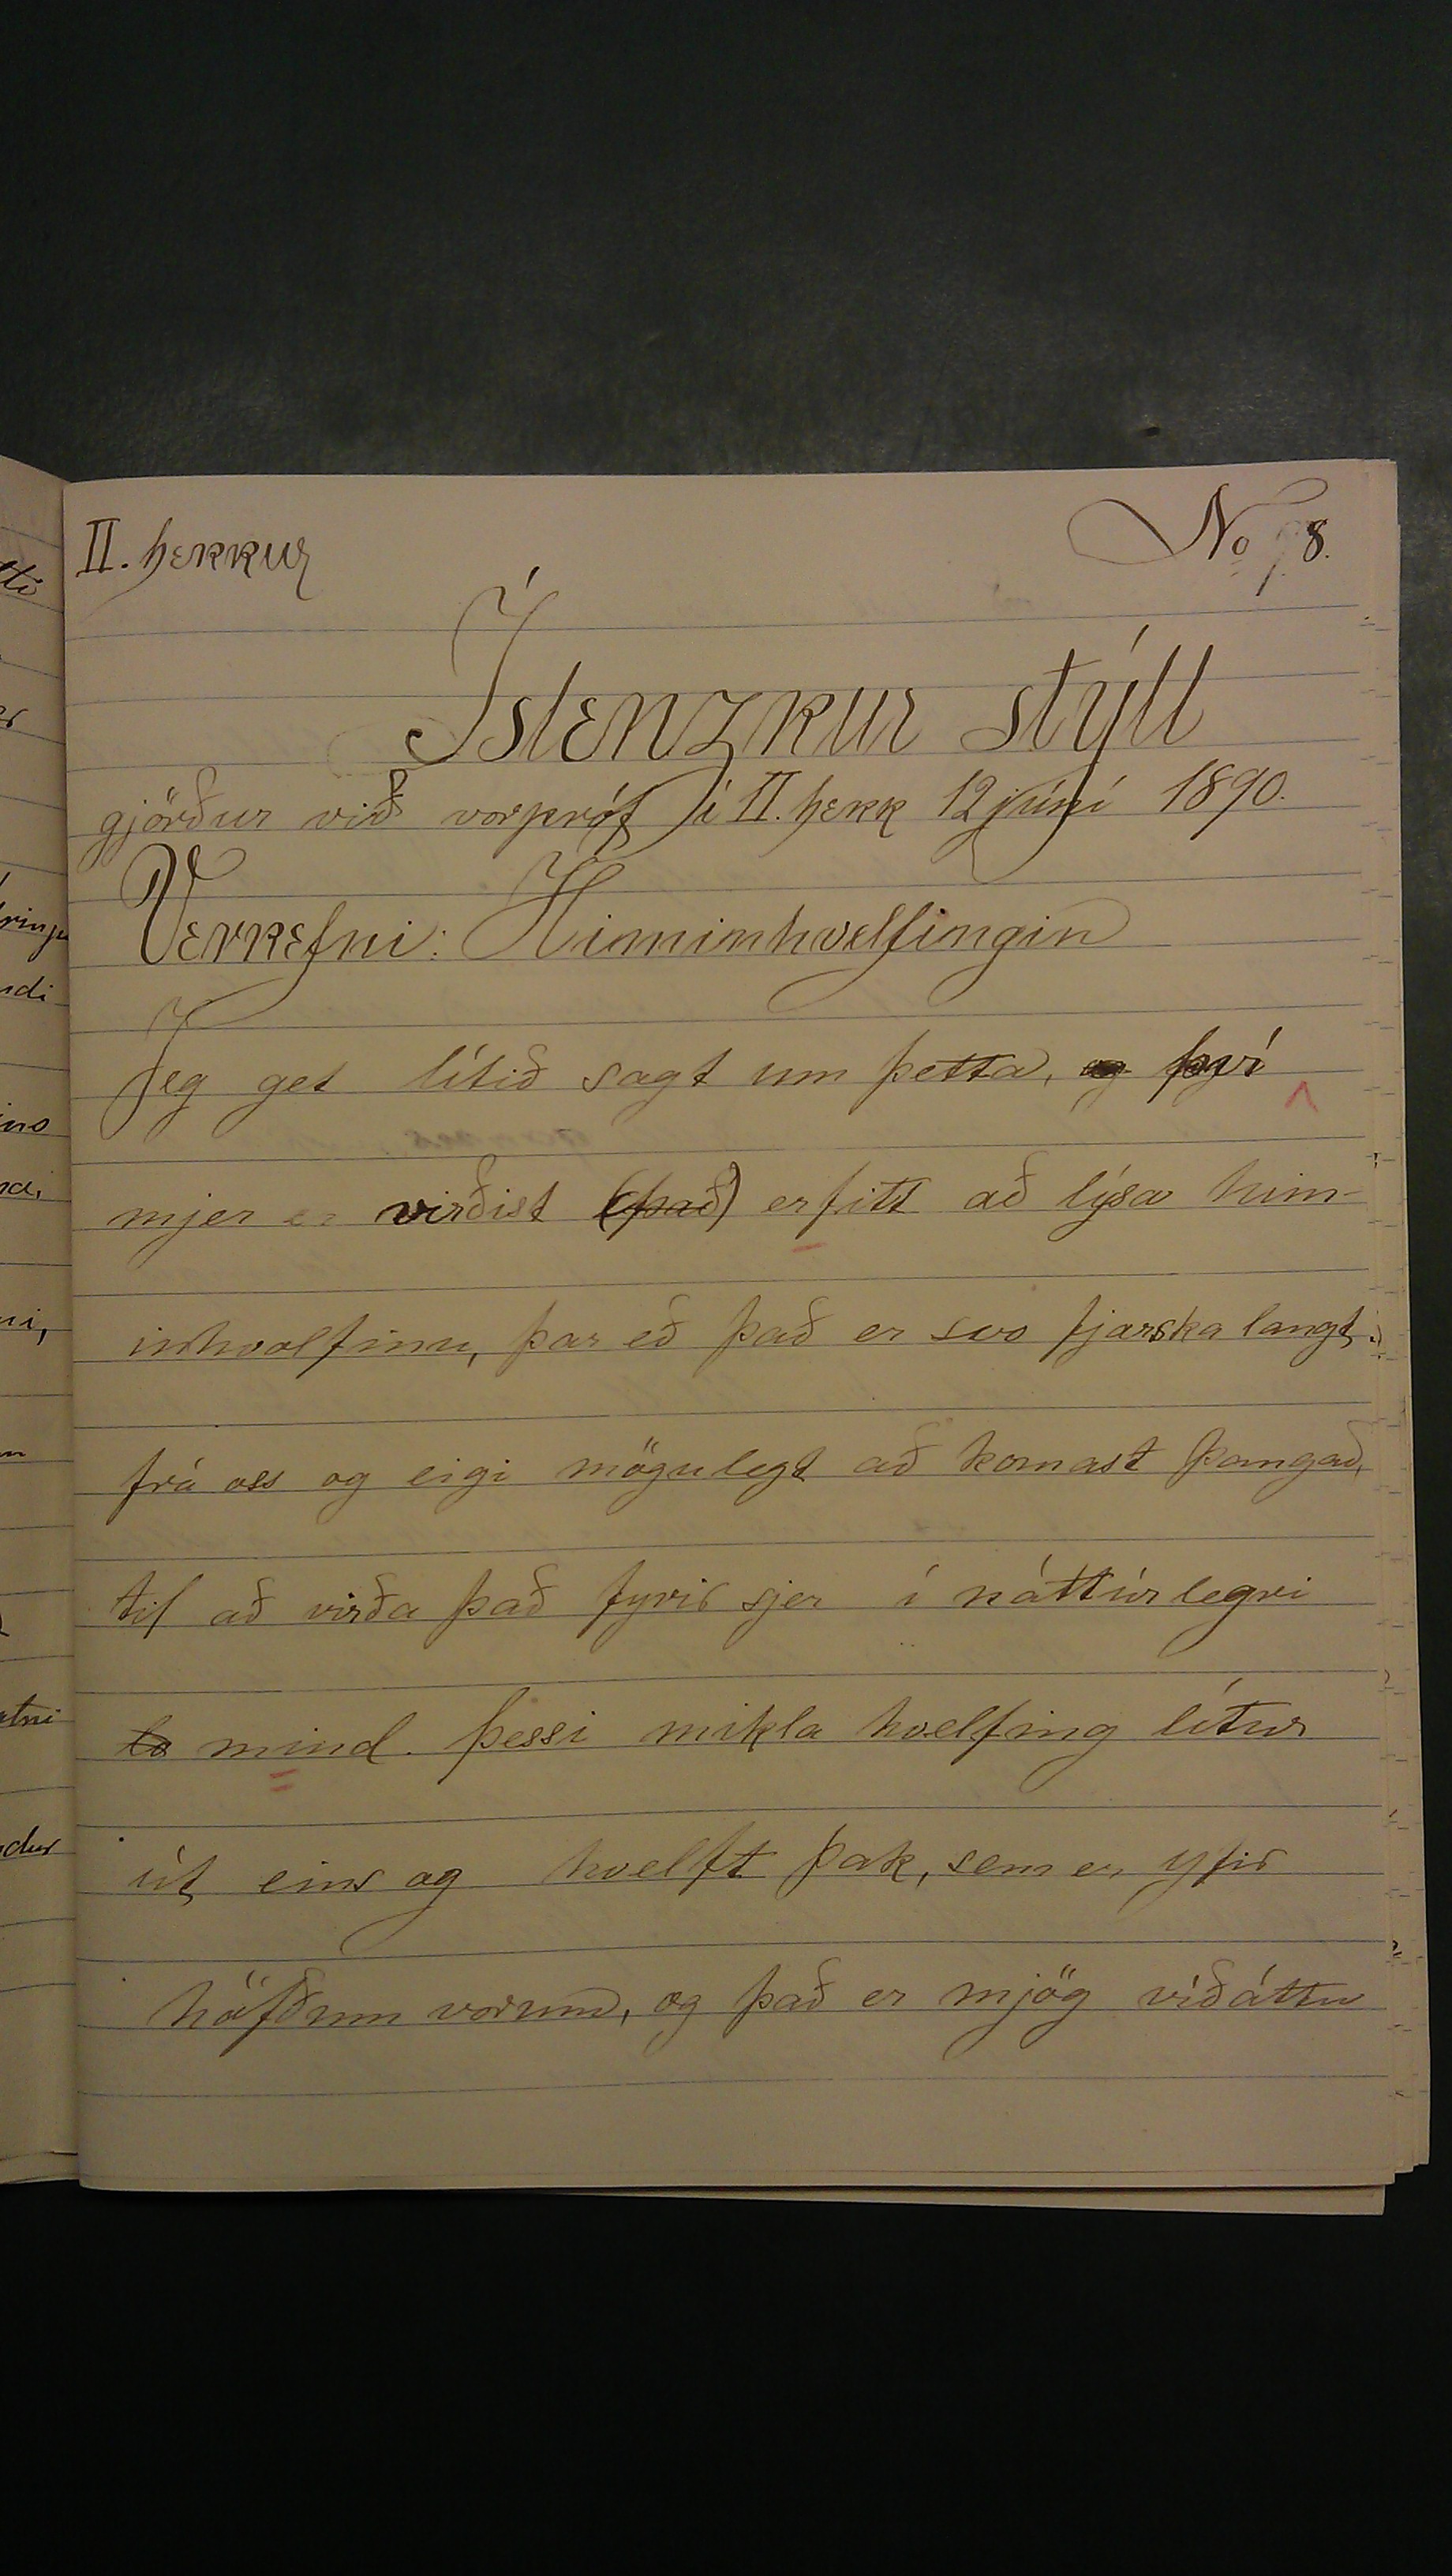 II. bekkur
No 8.
Íslenzkur stýll
gjörður við vorpróf í II. bekk 12 júní 1890.
Verkefni: Himinhvelfingin
Jeg get lítið sagt um þetta, og því
mjer er virðist (það) erfitt að lýsa him-
inhvolfinu, þar eð það er svo fjarska langt
frá oss og eigi mögulegt að komast þangað,
til að virða það fyrir sjer í náttúrlegri
mind. Þessi mikla hvelfing lítur
út eins og hvelft þak, sem er yfir
höfðum vorum, og það er mjög víðáttu